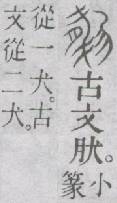 古文肰。小篆
從一犬。古
文從二犬。